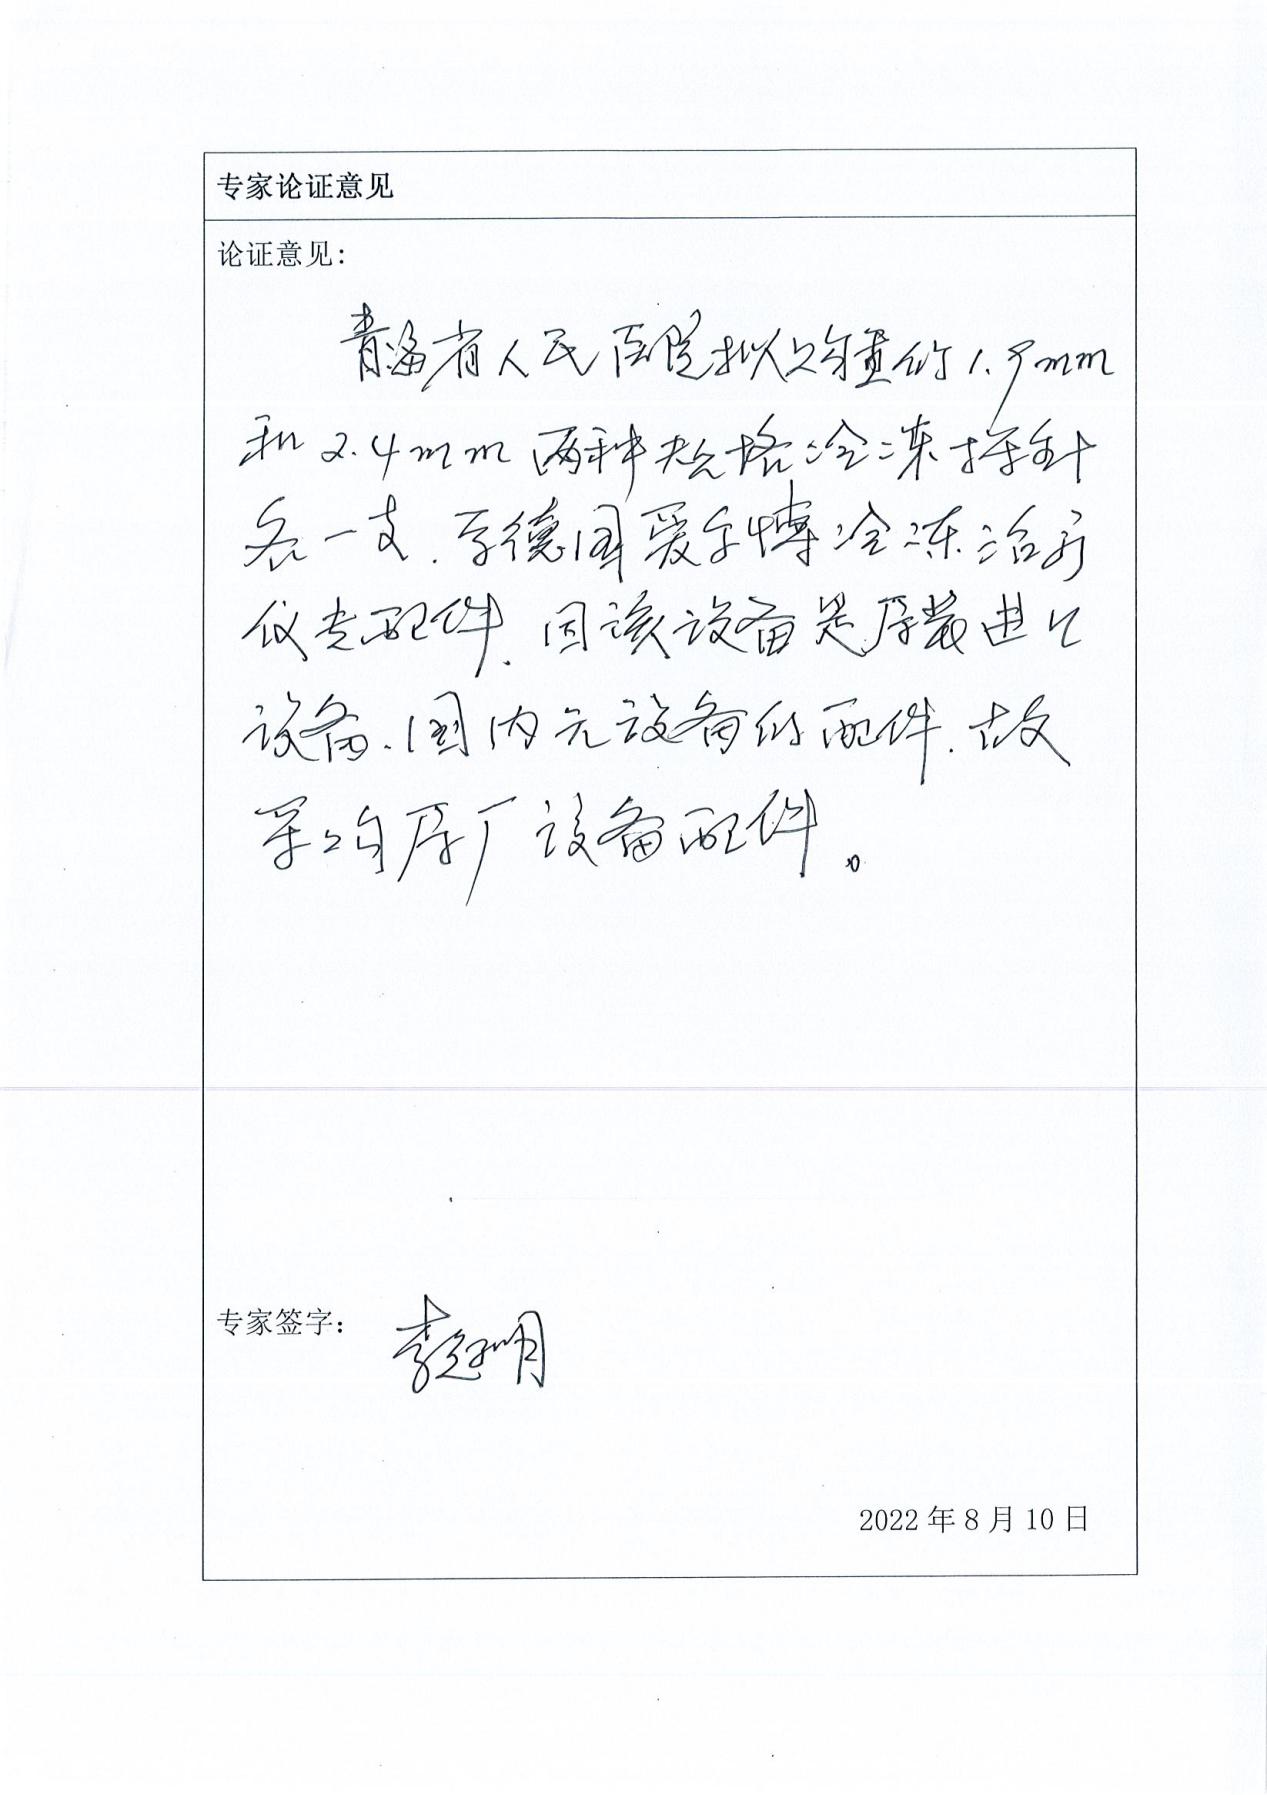 专家论证意见
论证意见：
青海省人民医院拟购置的1.9mm
和2.4mm两种规格冷冻探针
各一支，系德国爱尔博冷冻治疗
仪专配件，因该设备是原装进口
设备，国内无设备的配件，故
采购原厂设备配件。
专家签字：
2022年8月10日